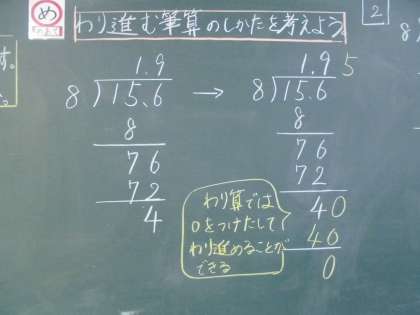 め
わり進む筆算のしかたを考えよう。
2
す。
1.9
8)15.6
8
76
72
4
→
1.95
8)15.6
8
76
72
40
40
0
わり算では
0をつけたして
わり進めることが
できる
8)